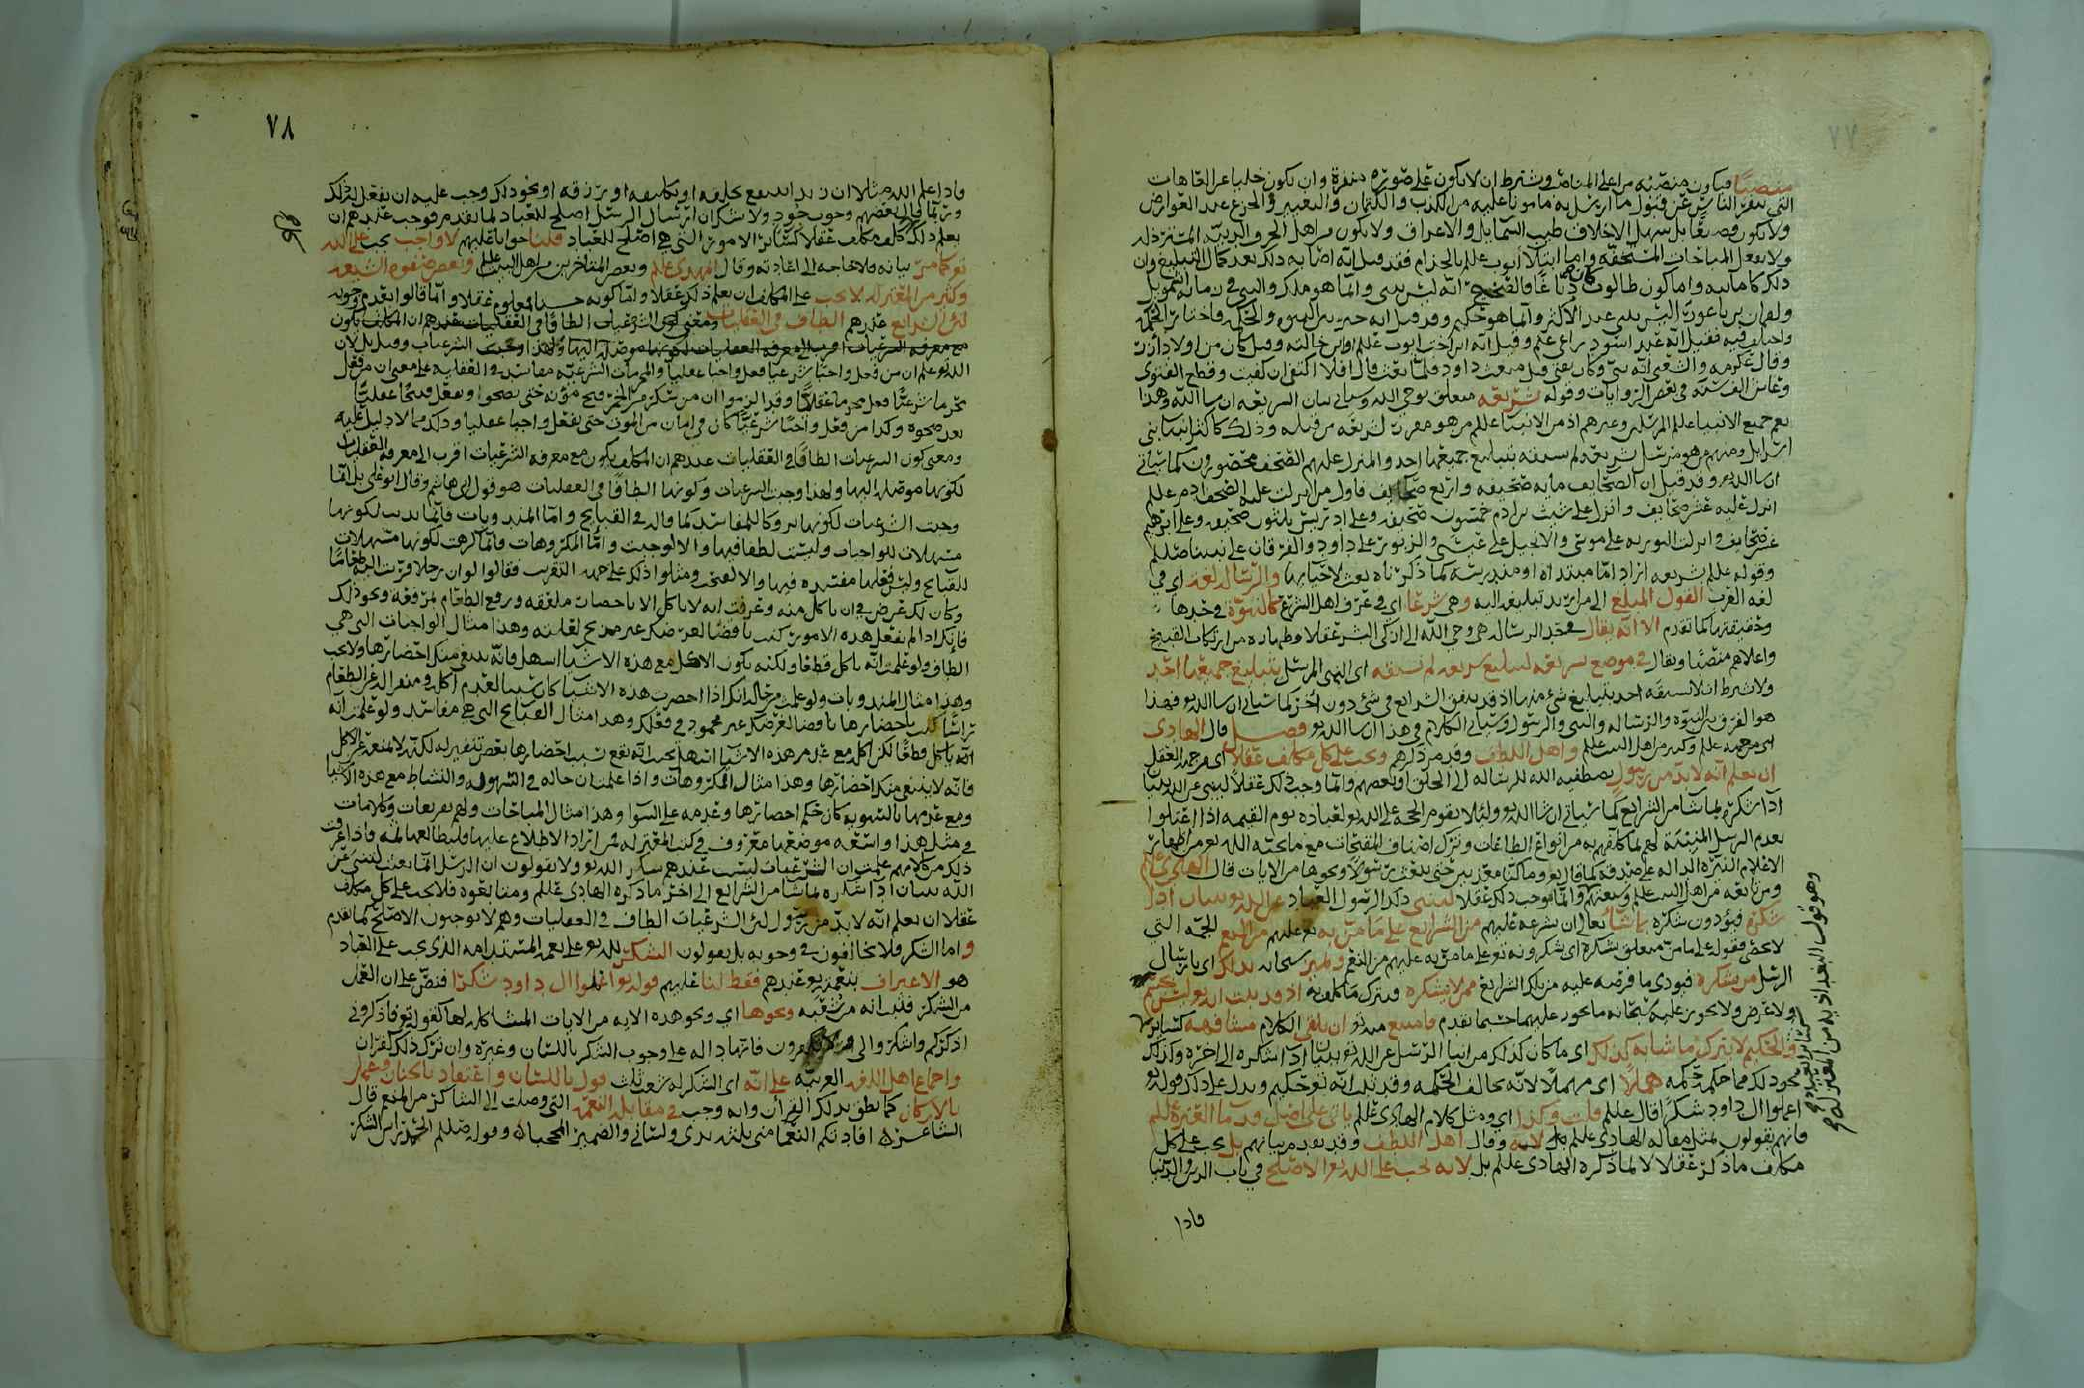 ٧٧
منصبا فيكون منصبه من اعلى المناصب ويشترط ان لا يكون على صورة منفرة وان يكون خليا عن العاهات
التي تنفر الناس عن قبول ما ارسل به مامونا عليه من الكذب والكتمان والتغيير والجزع عند العوارض
ولا يكون فضا بل سهل الاخلاق طيب الشمايل والاعراق ولا يكون من اهل الحرف الدنية المسترذلة
ولا يفعل المباحات المستخفة واما ابتلا أيوب عللم بالجذام فقد قيل انه اصابه ذلك بعد كمال التبليغ وان
ذلك كاماتته واما كون طالوت كان دباغا فالصحيح انه ليس بنبي وانما هو ملك والنبي في زمانه اشمويل
ولقمان بن باعورا ليس بنبي عند الاكثر وانما هو حكيم وقد قيل انه خير بين النبوة والحكمة فاختار الحكمة
واختلف فيه فقيل انه عبد اسود راعي غنم وقيل انه ابن اخت ايوب عللم او ابن خالته وقيل كان من اولاد آزر
وقال عكرمة والشعبي انه نبي وكان يفتي قبل مبعث داود فلما بعث قال افلا اكتفي ان كفيت وقطع الفتوى
وعاش الف سنة في بعض الروايات وقوله شريعة متعلق بوحي الله وسياتي بيان الشريعة ان شا الله وهذا
يعم جميع الانبيا عللم المرسلين وغيرهم اذ من الانبيا عللم من هو مقرر لشريعة من قبله وذلك كاكثر انبيا بني
اسرائيل ومنهم من هو مرسل بشريعة لم يسبقه بتبليغ جميعها احد والمنزل عليهم الصحف محصورون كما سياتي
ان شا الله وقد قيل ان الصحايف مايه صحيفه واربع صحايف فاول من انزلت عليه الصحف ادم عللم
انزل عليه عشر صحايف وانزل على شيث بن ادم خمسون صحيفه وعلى ادريس ثلثون صحيفه وعلى ابرهيم
عشر صحايف وانزلت التوريه على موسى والانجيل على عيسى والزبور على داود والفرقان على نبينا صللم
وقوله عللم شريعه اراد اما مبتداه او مندرسة كما ذكرناه بعث لاحيايها والرسالة لغة اي في
لغة العرب القول المبلغ الى من اريد تبليغه اليه وهي شرعا اي في عرف اهل الشرع كالنبوة في حدها
وحقيقتها كما تقدم الا انه يقال في حد الرسالة هي وحي الله الى ازكى البشر عقلا وطهارة من ارتكاب القبيح
واعلاهم منصبا ويقال في موضع شريعه لتبليغ شريعه لم يسبقه اي النبي المرسل بتبليغ جميعها احد
ولا يشرط ان لا يسبقه احد بتبليغ شي منها اذ قد يتفق الشرائع في شي دون اخر كما سياتي ان شا الله فهذا
هو الفرق بين النبوه والرسالة والنبي والرسول وسياتي الكلام في هذا ان شا الله فصل قال الهادي
يحيى بن الحسين عللم وكثير من اهل البيت عللم واهل اللطف وقد مر ذكرهم ويجب على كل مكلف عقلا اي من جهة العقل
ان يعلم انه لا بد من رسول يصطفيه الله للرسالة الى الخلق او بعضهم وانما وجب ذلك عقلا لينبي عن الله تبيان
آدا شكره بما شا من الشرائع كما سياتي ان شا الله ولئلا يقوم الحجة على الله لعباده يوم القيمه اذا اعتلوا
بعدم الرسل المبينة لهم ما كلفهم به من انواع الطاعات وترك اصناف المقبحات مع ما يمنحه الله من اظهار
الاعلام النيرة الدالة على صدقه كما قال وما كنا معذبين حتى نبعث رسولا ونحوها من الايات قال الهادي عللم
ومن تابعه من اهل البيت عللم وشيعتهم وانما وجب ذلك عقلا لينبي ذلك الرسول العباد عن الله بيان ادا
شكره فيؤدون شكره بما شا تعالى ان يشرعه عليهم من الشرائع على ما من به تع عليهم من النعم الجمة التي
لا تحصى فقوله على ما من متعلق بشكره اي شكرونه تع على ما من به عليهم من النعم وليميز سبحانه بذلك اي بارسال
الرسل من يشكره فيودي ما فرضه عليه من تلك الشرائع ممن لا يشكره ويترك ما كلف به اذ قد ثبت ان الله ليس بجسم
ولا عرض ولا يجوز عليه سبحانه ما يجوز عليهما حسبما تقدم فامتنع منه ان يلقى الكلام مشافهة كساير
والحكيم لا يترك ما شانه كذلك اي ما كان كذلك من انبا الرسل عن الله تبيان ادا شكره الى اخره وكذلك
نحو ذلك مما حكمه حكمه هملا اي مهملا لانه يخالف الحكمه وقد ثبت انه تع حكيم ويدل على ذلك قوله
اعملوا ال داود شكرا قال عللم قلت وكذا اي ومثل كلام الهادي عللم ياتي على اصل قدما العترة عللم
فانهم يقولون بمثل مقالة الهادي عللم بلا لانه وقال اهل اللطف وقد تقدم بيانهم بل يجب على كل
مكلف ما ذكر عقلا لا لما ذكره الهادي عللم بل لانه يجب على الله الاصلح في باب الدين والدنيا
فاذا
وهو قول البغداديه من المعتزله
٧٨
فاذا علم الله مثلا ان زيدا ينتفع بخلقه او تكليفه او رزقه او نحو ذلك وجب عليه ان يفعل له ذلك
وربما قال بعضهم وجوب جود ولا شك ان ارسال الرسل اصلح للعباد لما تقدم فوجب عندهم ان
يعلم ذلك كل مكلف عقلا كساير الامور التي هي اصلح للعباد قلنا جوابا عليهم لا واجب يجب على الله
تع كما مر بيانه فلا حاجة الى اعادته وقال المهدي عللم وبعض المتاخرين من اهل البيت عللم وبعض صفوة الشيعة
وكثير من المعتزلة لا يجب على المكلف ان يعلم ذلك عقلا وانما كونه حسنا معلوم عقلا وانما قالوا بعدم وجوبه
لان الشرايع عندهم الطاف في العقليات ومعنى كون الشرعيات الطافا في العقليات عندهم ان المكلف يكون
مع معرفة الشرعيات اقرب الى معرفة العقليات لكونها موصلة اليها ولهذا وجبت الشرعيات وقيل بل لان
الله علم ان من فعل واجبا شرعيا فعل واجبا عقليا والمحرمات الشرعية مفاسد في العقلية على معنى ان من فعل
محرما شرعيا فعل محرما عقليا وقد الزموا ان من سكر من الخمر قبح موته حتى يصحوا ويفعل قبيحا عقليا
بعد صحوه وكذا من فعل واجبا شرعيا كان في امان من الموت حتى يفعل واجبا عقليا وذلك مما لا دليل عليه
ومعنى كون الشرعيات الطافا في العقليات عندهم ان المكلف يكون مع معرفة الشرعيات اقرب الى معرفة العقليات
لكونها موصلة اليها ولهذا وجبت الشرعيات وكونها الطافا في العقليات هو قول ابي هاشم وقال ابو علي بل انما
وجبت الشرعيات لكونها تروكا للمفاسد كما قاله في القبايح واما المندوبات فانما ندبت لكونها
مسهلات للواجبات وليست لطفا فيها والا لوجبت واما المكروهات فانما كرهت لكونها مسهلات
للقبايح وليس فعلها مفسده فيها والا لقبحت ومثلوا ذلك على جهة التقريب فقالوا لو ان رجلا قرب اليه طعاما
وكان لك غرض في ان ياكل منه وعرفت انه لا ياكل الا باحضار ملعقه ورفع الطعام لمرفعة ونحو ذلك
فانك اذا لم تفعل هذه الامور كنت ناقضا لغرضك غير مزيح لعلته وهذا مثال الواجبات التي هي
الطاف ولو علمت انه ياكل قطعا ولكنه يكون الاكل مع هذه الاشيا اسهل فانه ينبغي منك احضارها ولا يجب
وهذا مثال المندوبات ولو علمت من حاله انك اذا احضرت هذه الاشيا كان سببا لعدم اكله ومنفرا له عن الطعام
راسا كنت باحضارها ناقضا لغرضك غير محمود في فعلك وهذا مثال القبايح التي هي مفاسد ولو علمت انه
انه ياكل قطعا لكن اكله مع عدم هذه الاشيا اسهل بحيث انه يقع بسبب احضارها بعض تنفير له لكنه لا يمنعه عن الاكل
فانه لا ينبغي منك احضارها وهذا مثال المكروهات واذا علمت ان حاله في السهوله والنشاط مع هذه الاشيا
ومع عدمها بالسويه كان حكم احضارها وعدمه على السوا وهذا مثال المباحات ولهم تفريعات وكلامات
في مثل هذا واسعة موضعها معروف في كتب المعتزله فمن اراد الاطلاع عليها فليطالعها ثمه واذا عرفت
ذلك من كلامهم علمت ان الشرعيات ليست عندهم شكر الله ولا يقولون ان الرسل انما بعث لينبي عن
الله ببيان ادا شكره بما شا من الشرائع الى اخر ما ذكره الهادي عللم ومتابعوه فلا يجب على كل مكلف
عقلا ان يعلم انه لا بد من رسول لان الشرعيات الطاف في العقليات وهم لا يوجبون الاصلح كما تقدم
واما الشكر فلا يخالفون في وجوبه بل يقولون الشكر لله تع على نعمه المستدامه الذي يجب على العباد
هو الاعتراف بنعم الله تع عندهم فقط لنا عليهم قوله تع اعملوا ال داود شكرا فنص على ان العمل
من الشكر فثبت انه من شعبه ونحوها اي ونحو هذه الايه من الايات المشاكلة لها كقوله تع فاذكروني
اذكركم واشكروا لي ولا تكفرون فانها دالة على وجوب الشكر باللسان وغيره وان ترك ذلك كفران
واجماع اهل اللغه العربيه على انه اي الشكر له شعب ثلث قول باللسان واعتقاد بالجنان وعمل
بالاركان كما نطق بذلك القرآن وانه وجب في مقابلة النعمة التي وصلت الى الشاكر من المنعم قال
الشاعر افادتكم النعما مني ثلثة يدي ولساني والضمير المحجبا وقوله صللم الحمد راس الشكر